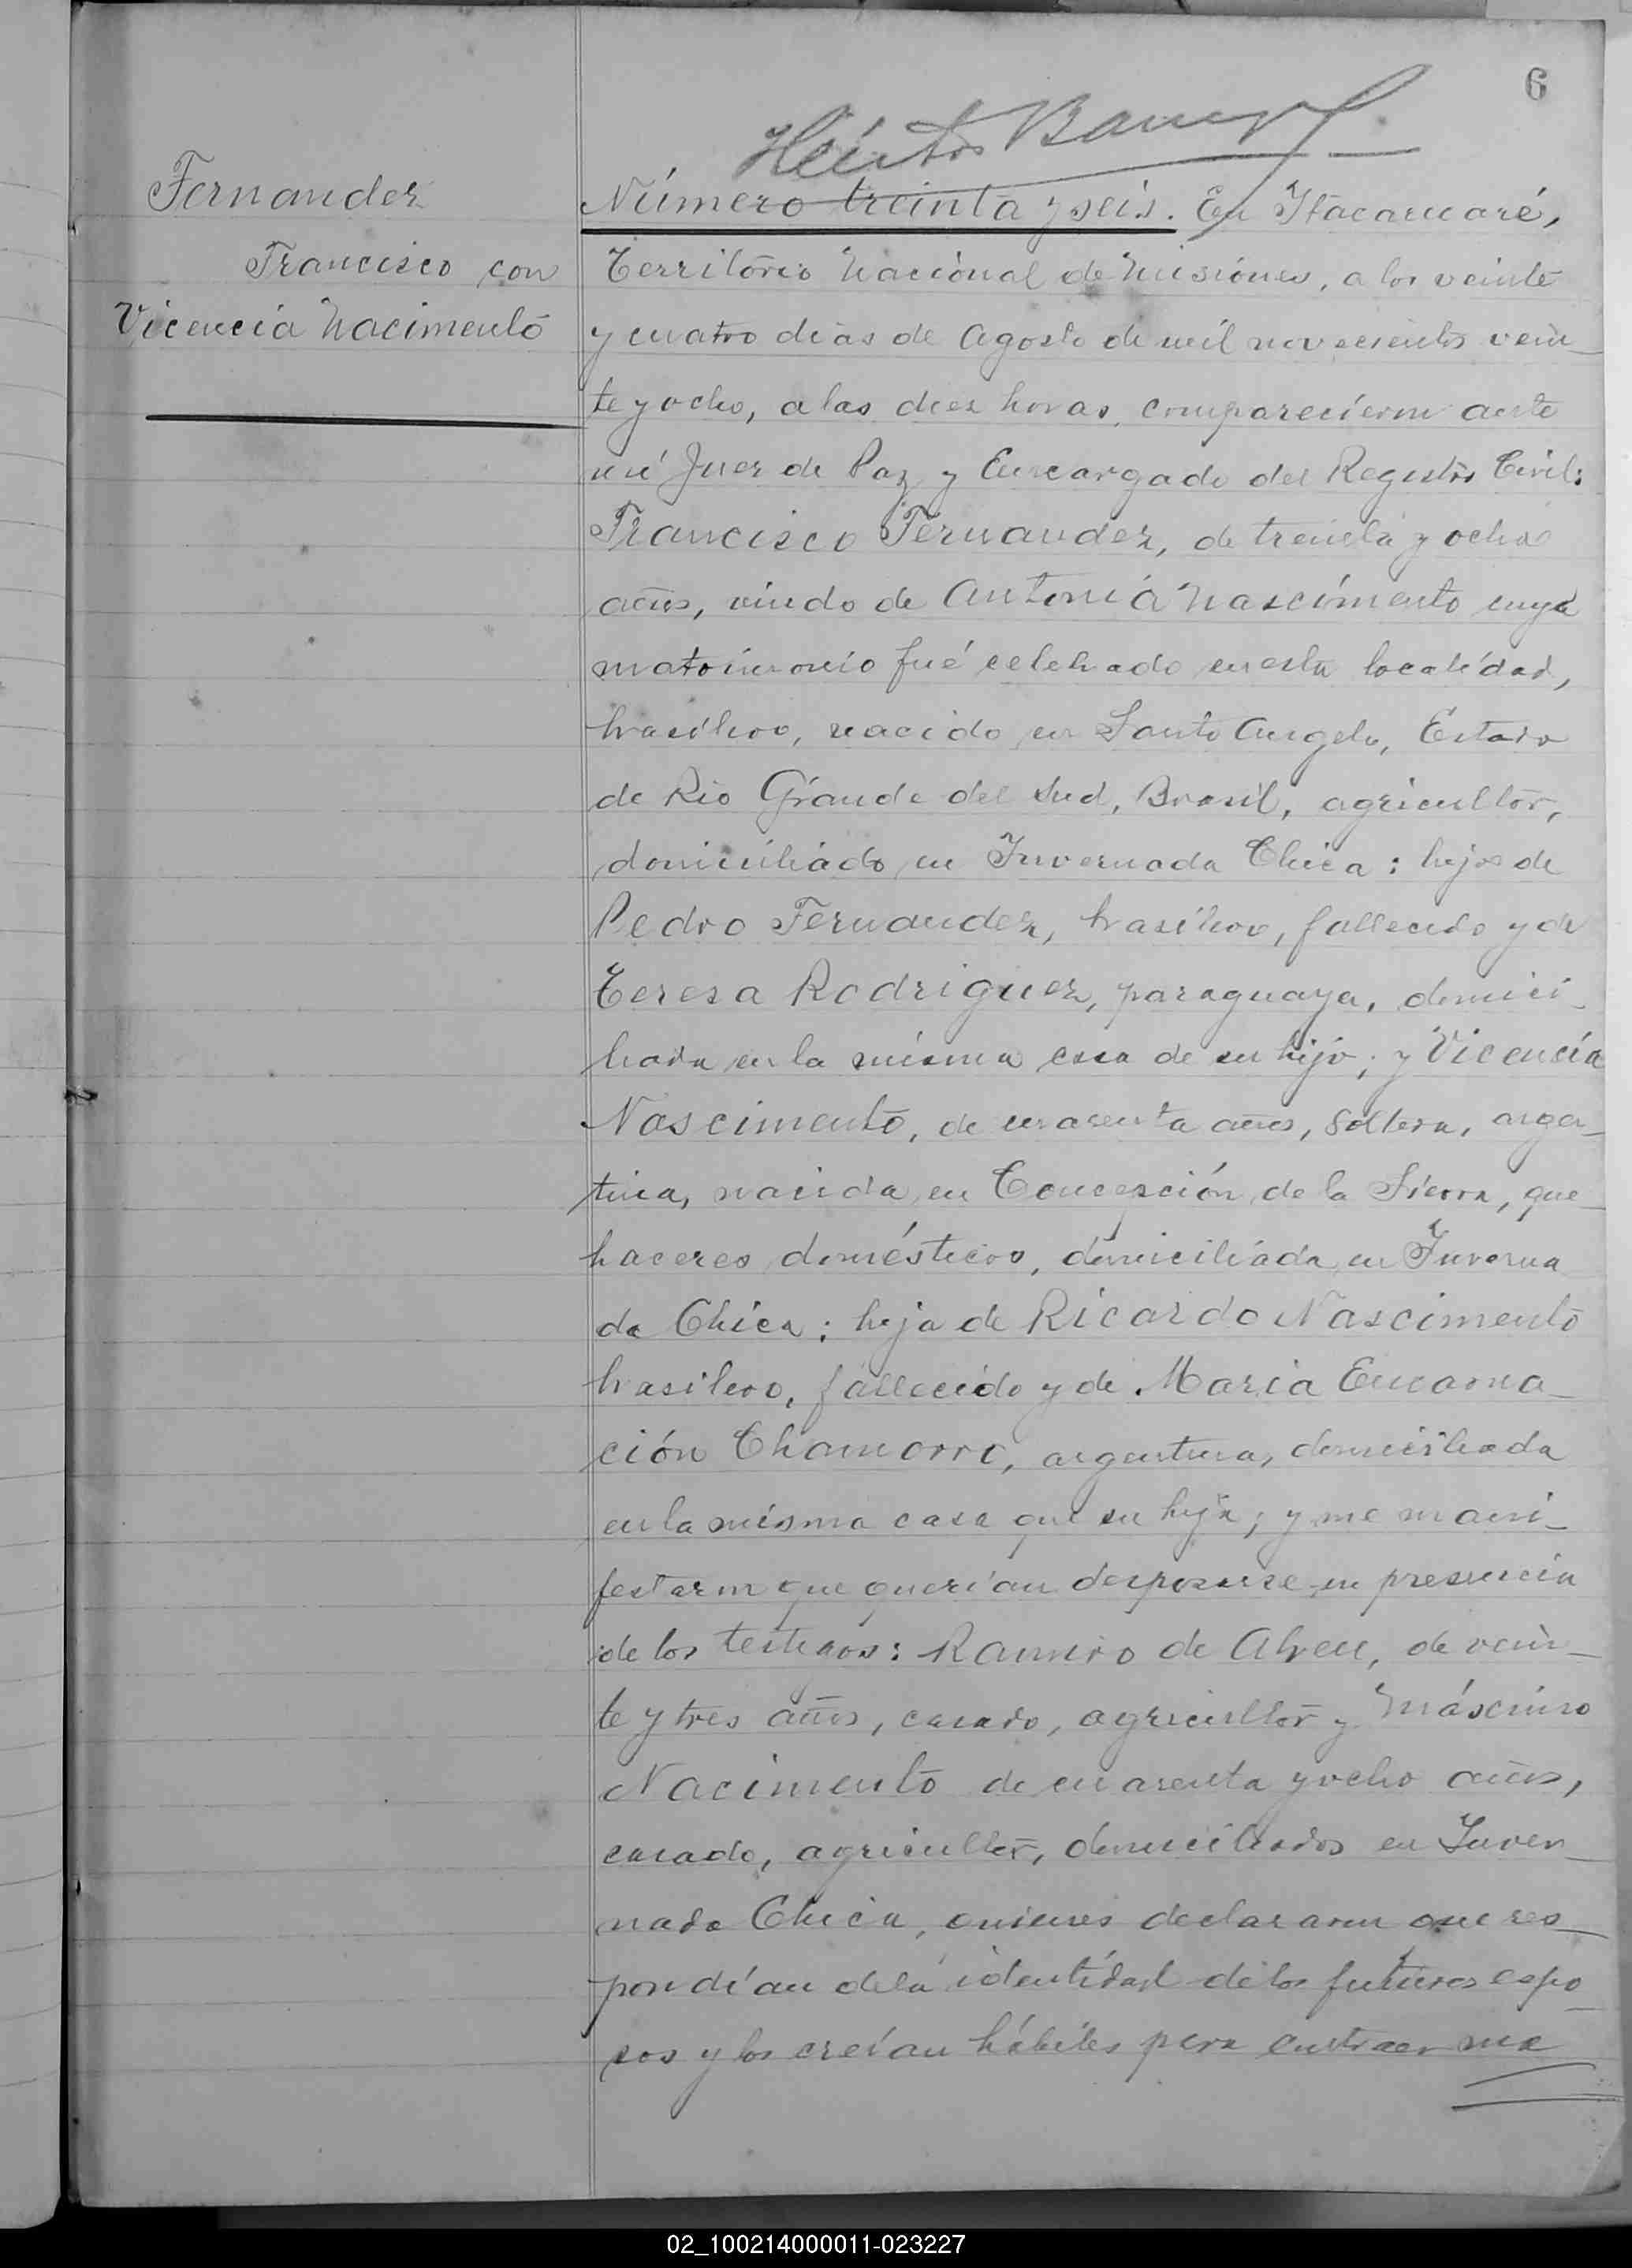 6
Héctor
Fernandez
Francisco con
Vicencia Nacimento
Número treinta y seis. En Itacaruaré,
Territorio Nacional de Misiones, a los veinte
y cuatro dias de Agosto de mil novecientos vein-
te y ocho, a las diez horas, comparecieron ante
mi Juez de Paz y Encargado del Registro Civil:
Francisco Fernandez, de treinta y ocho
años, viudo de Antonia Nascimento cuyo
matrimonio fué celebrado en esta localidad,
brasilero, nacido en Santo Angelo, Estado
de Rio Grande del Sud, Brasil, agricultor,
domiciliado en Invernada Chica: hijo de
Pedro Fernandez, brasilero, fallecido y de
Teresa Rodriguez, paraguaya, domici-
liada en la misma casa de su hijo; y Vicencia
Nascimento, de cuarenta años, soltera, argen-
tina, nacida en Concepción de la Sierra, que-
haceres domésticos, domiciliada en Inverna
da Chica: hija de Ricardo Nascimento
brasilero, fallecido y de Maria Encarna-
ción Chamorro, argentina, domiciliada
en la misma casa que su hija; y me mani-
festaron que querían desposarse en presencia
de los testigos: Ramiro de Abreu, de vein-
te y tres años, casado, agricultor y Máscimo
Nacimento de cuarenta y ocho años,
casado, agricultor, domiciliados en Inver-
nada Chica, quienes declararon que res-
pondían de la identidad de los futuros espo-
sos y los creían hábiles para contraer ma
02_100214000011-023227